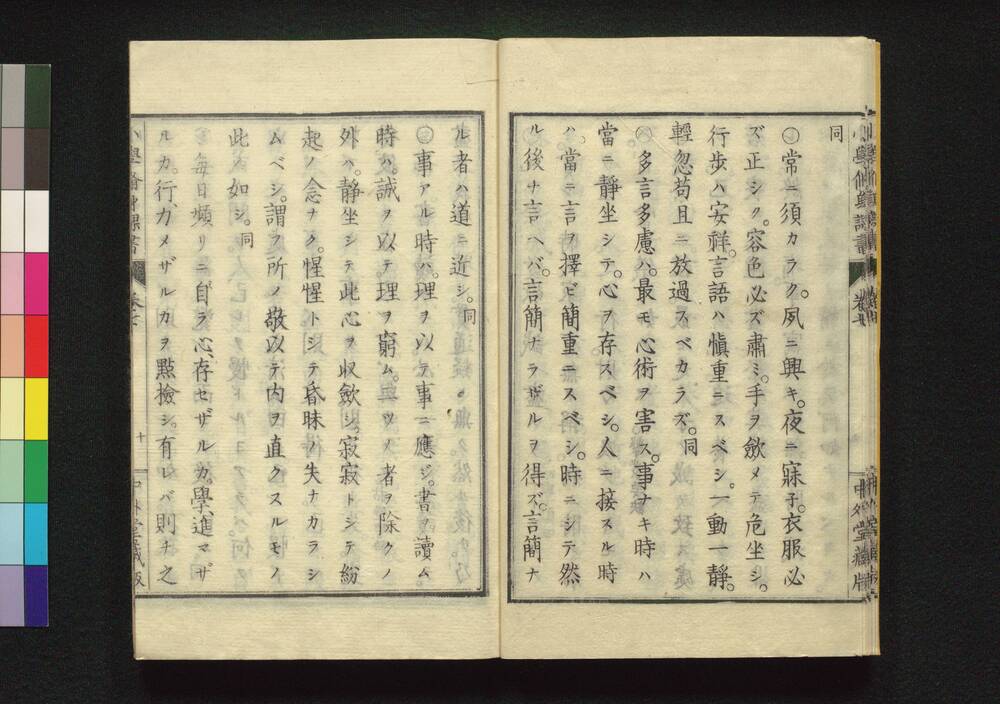 同
〇常ニ須カラク。夙ニ興キ。夜ニ寐子。衣服必
ズ正シク。容色必ズ肅ミ。手ヲ斂メテ危坐シ。
行歩ハ安祥。言語ハ愼重ニスベシ。一動一靜。
輕忽苟且ニ放過スベカラズ。同
〇多言多慮ハ。最モ心術ヲ害ス。事ナキ時ハ
當ニ靜坐シテ。心ヲ存スベシ。人ニ接スル時
ハ。當ニ言ヲ擇ビ簡重ニスベシ。時ニシテ然
ル後ナ言ヘバ。言簡ナラザルヲ得ズ。言簡ナ
ル者ハ道ニ近シ。同
〇事アル時ハ。理ヲ以テ事ニ應ジ。書ヲ讀ム
時ハ。誠ヲ以テ。理ヲ窮ム。二ツノ者ヲ除クノ
外ハ。靜坐シテ此心ヲ收斂シ。寂寂トシテ紛
起ノ念ナク。惺惺トシテ昏昧ノ失ナカラシ
ムベシ。謂フ所ノ敬以テ内ヲ直クスルモノ
此ノ如シ。同
〇毎日頻リニ自ラ心存セザルカ。學進マザ
ルカ。行力メザルカヲ點撿シ。有レバ則ナ之
小學脩身課書 卷 十 中外堂藏版